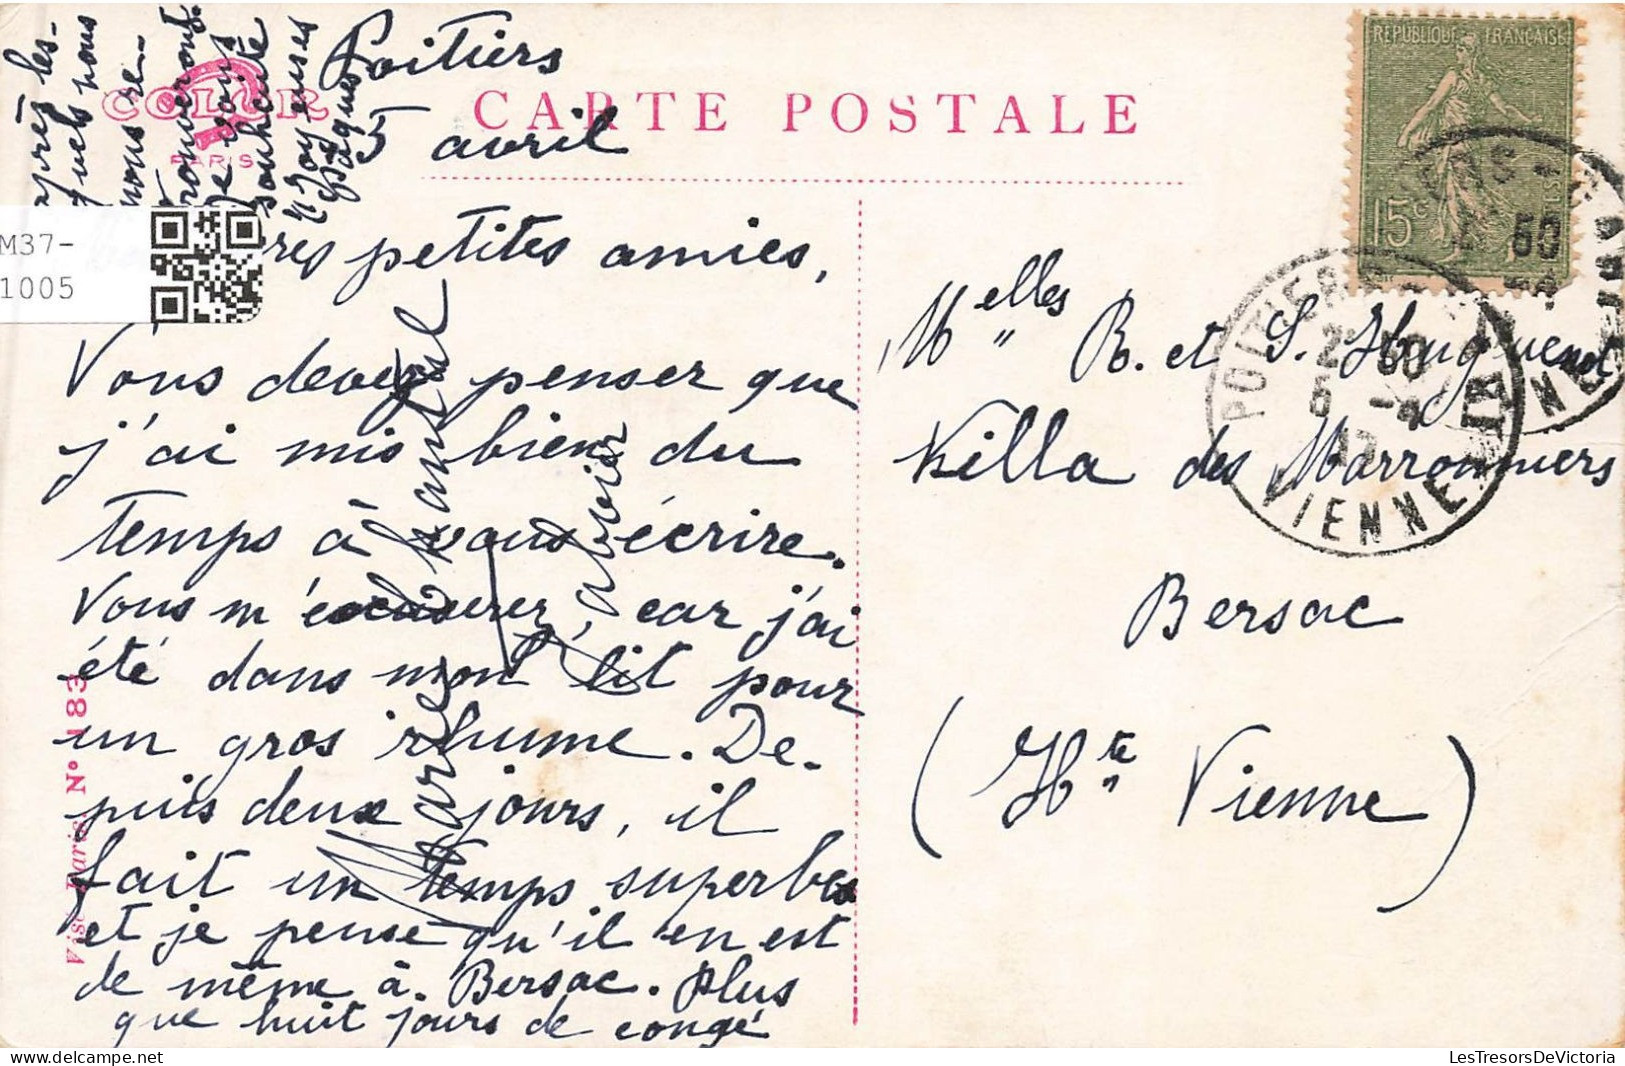 Poitiers
5 avril
CARTE POSTALE
COLOR
PARIS
res petites amies,
Vous devez penser que
j'ai mis bien du
temps à vous écrire.
Vous m'excuserez, car j'ai
été dans mon lit pour
un gros rhume. De-
puis deux jours, il
fait un temps superbe
et je pense qu'il en est
de même à Bersac. Plus
que huit jours de congé
après les-
quels nous
nous re-
trouverons.
Je vous
souhaite
"Joyeuses
Pâques
Visé Paris. N° 183
M37-
1005
REPUBLIQUE FRANÇAISE
15c
POITIERS
VIENNE
Melles R. et S. Huguenot
Villa des Marronniers
Bersac
(Hte Vienne)
LesTresorsDeVictoria